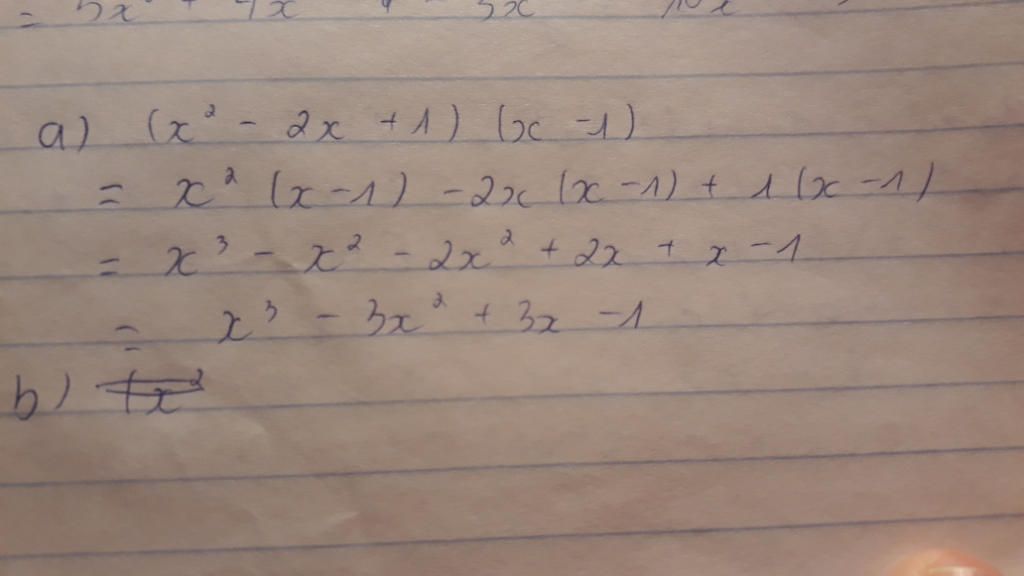 a) (x² - 2x + 1) (x - 1)
= x² (x - 1) - 2x (x - 1) + 1 (x - 1)
= x³ - x² - 2x² + 2x + x - 1
= x³ - 3x² + 3x - 1
b)